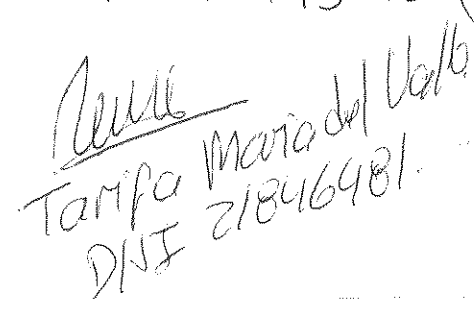 Tarifa Maria del Valle
DNI 21846481